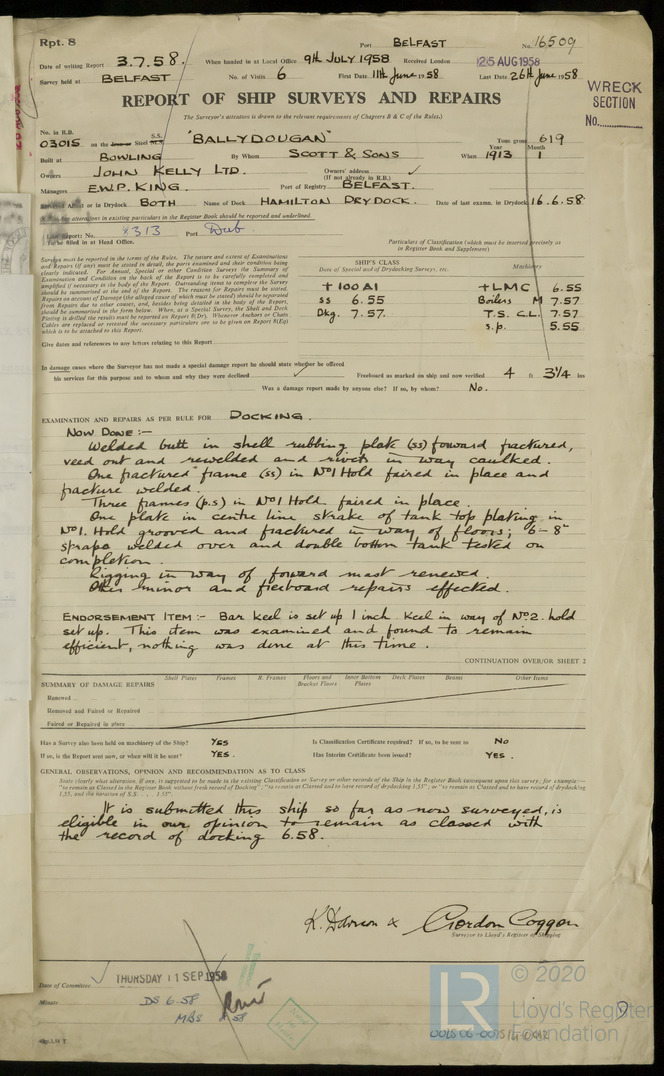 Rpt. 8
Port BELFAST No. 16509
Date of writing Report 3.7.58. When handed in at Local Office 9th JULY 1958 Received London 25 AUG 1958
Survey held at BELFAST No. of Visits 6 First Date 11th June 1958 Last Date 26th June 1958
WRECK
SECTION
No.
REPORT OF SHIP SURVEYS AND REPAIRS
(The Surveyor's attention is drawn to the relevant requirements of Chapters B & C of the Rules.)
No. in R.B. 03015 on the Steel S.S. "BALLYDOUGAN" Tons gross 619
Built at BOWLING By Whom SCOTT & SONS When Year 1913 Month 1
Owners JOHN KELLY LTD. Owners' address (If not already in R.B.)
Managers E.W.P. KING. Port of Registry BELFAST.
Surveyed Afloat or in Drydock BOTH Name of Dock HAMILTON DRYDOCK. Date of last exam. in Drydock 16.6.58
alterations in existing particulars in the Register Book should be reported and underlined.
Last Report: No. 8313 Port Dub
To be filled in at Head Office.
Particulars of Classification (which must be inserted precisely as in Register Book and Supplement)
Surveys must be reported in the terms of the Rules. The nature and extent of Examinations
and Repairs (if any) must be stated in detail, the parts examined and their condition being
clearly indicated. For Annual, Special or other Condition Surveys the Summary of
Examination and Condition on the back of the Report is to be carefully completed and
amplified if necessary in the body of the Report. Outstanding items to complete the Survey
should be summarised at the end of the Report. The reasons for Repairs must be stated.
Repairs on account of Damage (the alleged cause of which must be stated) should be separated
from Repairs due to other causes, and, besides being detailed in the body of the Report,
should be summarised in the form below. When, at a Special Survey, the Shell and Deck
Plating is drilled the results must be reported on Report 8(Dr). Whenever Anchors or Chain
Cables are replaced or retested the necessary particulars are to be given on Report 8(Eq)
which is to be attached to this Report.
SHIP'S CLASS
Date of Special and of Drydocking Surveys, etc.
Machinery
+100A1 +LMC 6.55
SS 6.55 Boilers M 7.57
Dkg. 7.57. T.S. C.L. 7.57
S.P. 5.55
Give dates and references to any letters relating to this Report
In damage cases where the Surveyor has not made a special damage report he should state whether he offered
his services for this purpose and to whom and why they were declined
Freeboard as marked on ship and now verified 4 ft 3¼ ins
Was a damage report made by anyone else? If so, by whom? No.
EXAMINATION AND REPAIRS AS PER RULE FOR DOCKING.
NOW DONE :-
Welded butt in shell rubbing plate (ss) forward fractured,
veed out and rewelded and rivets in way caulked.
One fractured frame (ss) in No1 Hold faired in place and
fracture welded.
Three frames (p.s) in No1 Hold faired in place.
One plate in centre line strake of tank top plating in
No1. Hold grooved and fractured in way of floors; 6-8"
straps welded over and double bottom tank tested on
completion.
Rigging in way of forward mast renewed.
Other minor and freeboard repairs effected.
ENDORSEMENT ITEM :- Bar keel is set up 1 inch. Keel in way of No2. hold
set up. This item was examined and found to remain
efficient, nothing was done at this time.
CONTINUATION OVER/OR SHEET 2
SUMMARY OF DAMAGE REPAIRS Shell Plates Frames R. Frames Floors and Bracket Floors Inner Bottom Plates Deck Plates Beams Other Items
Renewed
Removed and Faired or Repaired
Faired or Repaired in place
Has a Survey also been held on machinery of the Ship? YES Is Classification Certificate required? If so, to be sent to No
If so, is the Report sent now, or when will it be sent? YES. Has Interim Certificate been issued? YES.
GENERAL OBSERVATIONS, OPINION AND RECOMMENDATION AS TO CLASS
It is submitted this ship so far as now surveyed, is
eligible in our opinion to remain as classed with
the record of docking 6.58.
K. Dawson & Gordon Coggon
Surveyor to Lloyd's Register of Shipping
Date of Committee THURSDAY 11 SEP 1958
Minute DS 6.58
MBS 58
LR
© 2020
Lloyd's Register
Foundation